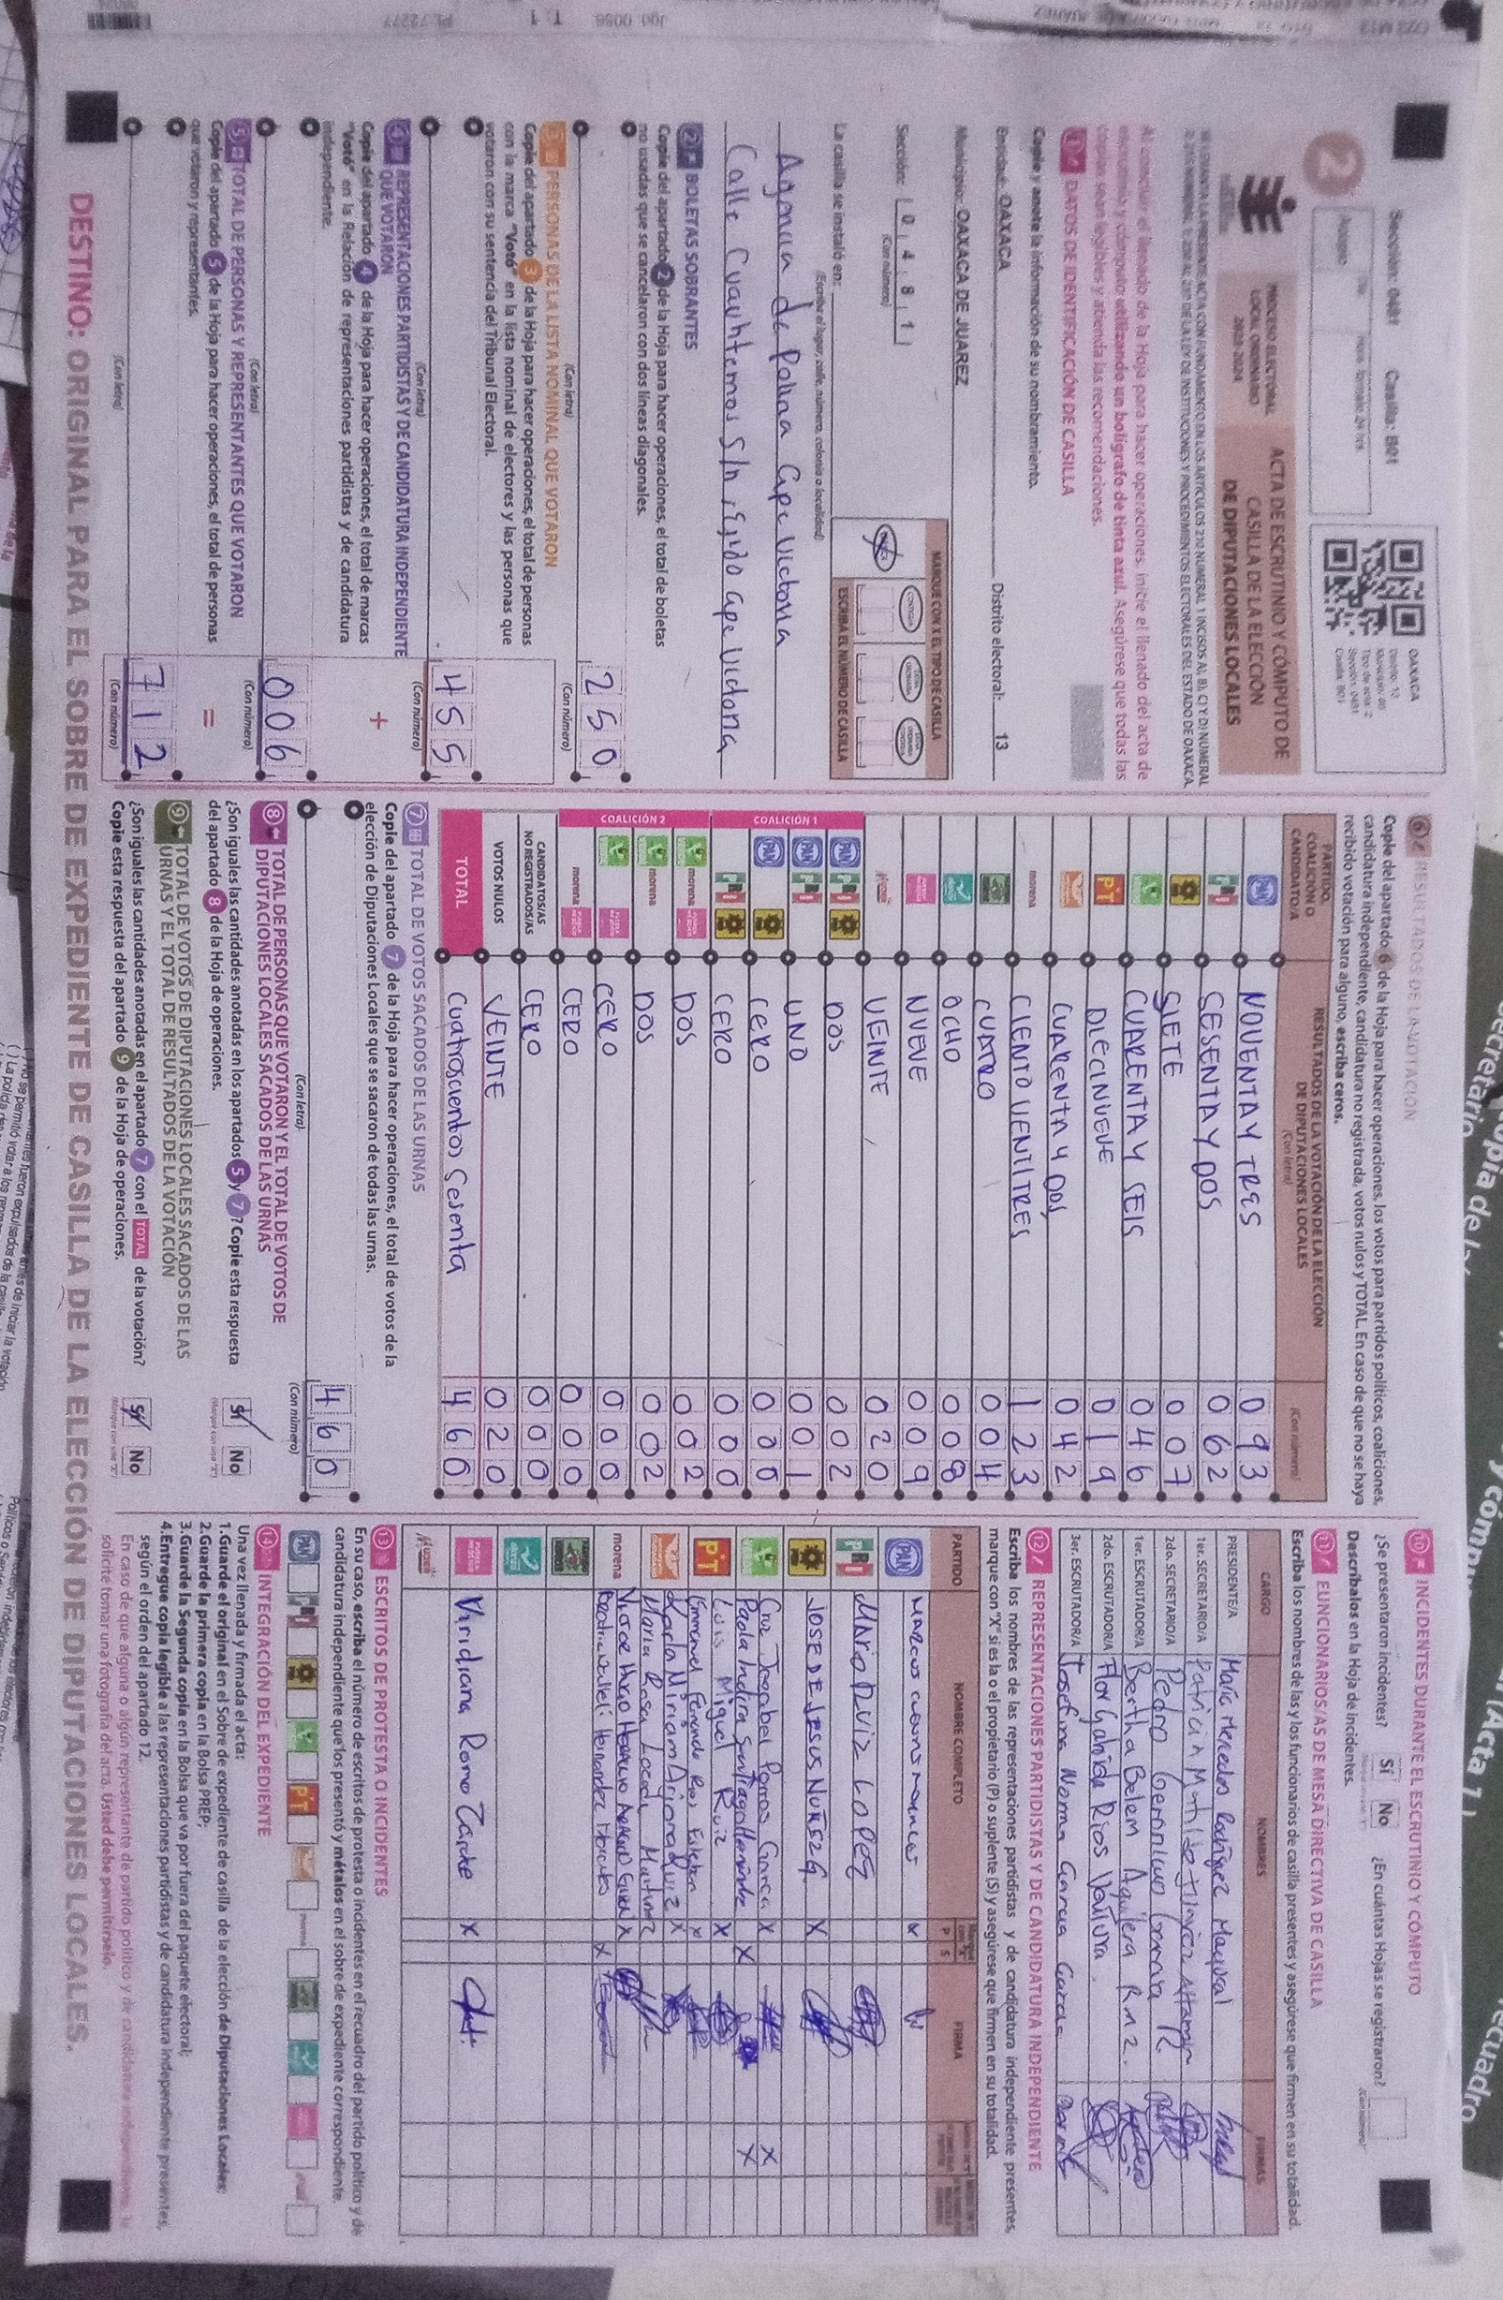 Sección: 0481 Casilla: B01
OAXACA
Distrito: 13
Tipo de acta: 2
Sección: 0481
Casilla: B01
2
PROCESO ELECTORAL
LOCAL ORDINARIO
2023-2024
ACTA DE ESCRUTINIO Y CÓMPUTO DE
CASILLA DE LA ELECCIÓN
DE DIPUTACIONES LOCALES
Al concluir el llenado de la Hoja para hacer operaciones, inicie el llenado del acta de
escrutinio y cómputo utilizando un bolígrafo de tinta azul. Asegúrese que todas las
copias sean legibles y atienda las recomendaciones.
1 DATOS DE IDENTIFICACIÓN DE CASILLA
Copie y anote la información de su nombramiento.
Entidad: OAXACA Distrito electoral: 13
Municipio: OAXACA DE JUÁREZ
Sección: 0 4 8 1
(Con número)
MARQUE CON X EL TIPO DE CASILLA
ESCRIBA EL NÚMERO DE CASILLA
La casilla se instaló en:
(Escriba el lugar, calle, número, colonia o localidad)
Agencia de Policia Gpe Victoria
Calle Cuauhtemos S/n, Ejido Gpe Victoria
2 BOLETAS SOBRANTES
Copie del apartado 2 de la Hoja para hacer operaciones, el total de boletas
no usadas que se cancelaron con dos líneas diagonales.
250
(Con letra) (Con número)
3 PERSONAS DE LA LISTA NOMINAL QUE VOTARON
Copie del apartado 3 de la Hoja para hacer operaciones, el total de personas
con la marca "Votó" en la lista nominal de electores y las personas que
votaron con su sentencia del Tribunal Electoral.
455
(Con letra) (Con número)
4 REPRESENTACIONES PARTIDISTAS Y DE CANDIDATURA INDEPENDIENTE
QUE VOTARON
Copie del apartado 4 de la Hoja para hacer operaciones, el total de marcas
"Votó" en la Relación de representaciones partidistas y de candidatura
independiente.
+
006
(Con letra) (Con número)
5 TOTAL DE PERSONAS Y REPRESENTANTES QUE VOTARON
Copie del apartado 5 de la Hoja para hacer operaciones, el total de personas
que votaron y representantes.
=
712
(Con letra) (Con número)
6 RESULTADOS DE LA VOTACIÓN
Copie del apartado 6 de la Hoja para hacer operaciones, los votos para partidos políticos, coaliciones,
candidatura independiente, candidatura no registrada, votos nulos y TOTAL. En caso de que no se haya
recibido votación para alguno, escriba ceros.
PARTIDO,
COALICIÓN O
CANDIDATO/A
RESULTADOS DE LA VOTACIÓN DE LA ELECCIÓN
DE DIPUTACIONES LOCALES
(Con letra) (Con número)
PAN NOVENTA Y TRES 093
PRI SESENTA Y DOS 062
SIETE 007
CUARENTA Y SEIS 046
PT DIECINUEVE 019
CUARENTA Y DOS 042
morena CIENTO VENTITRES 123
CUATRO 004
OCHO 008
NUEVE 009
VEINTE 020
COALICIÓN 1
PAN PRI DOS 002
PAN PRI UNO 001
PAN CERO 000
PRI CERO 000
COALICIÓN 2
morena DOS 002
morena DOS 002
CERO 000
morena CERO 000
CANDIDATOS/AS
NO REGISTRADOS/AS CERO 000
VOTOS NULOS VEINTE 020
TOTAL Cuatroscientos Sesenta 460
7 TOTAL DE VOTOS SACADOS DE LAS URNAS
Copie del apartado 7 de la Hoja para hacer operaciones, el total de votos de la
elección de Diputaciones Locales que se sacaron de todas las urnas.
460
(Con letra) (Con número)
8 TOTAL DE PERSONAS QUE VOTARON Y EL TOTAL DE VOTOS DE
DIPUTACIONES LOCALES SACADOS DE LAS URNAS
¿Son iguales las cantidades anotadas en los apartados 5 y 7? Copie esta respuesta
del apartado 8 de la Hoja de operaciones.
Sí No
9 TOTAL DE VOTOS DE DIPUTACIONES LOCALES SACADOS DE LAS
URNAS Y EL TOTAL DE RESULTADOS DE LA VOTACIÓN
¿Son iguales las cantidades anotadas en el apartado 7 con el TOTAL de la votación?
Copie esta respuesta del apartado 9 de la Hoja de operaciones.
Sí No
10 INCIDENTES DURANTE EL ESCRUTINIO Y CÓMPUTO
¿Se presentaron incidentes? Sí No ¿En cuántas Hojas se registraron?
Descríbalos en la Hoja de incidentes.
11 FUNCIONARIOS/AS DE MESA DIRECTIVA DE CASILLA
Escriba los nombres de las y los funcionarios de casilla presentes y asegúrese que firmen en su totalidad.
CARGO NOMBRES FIRMAS
PRESIDENTE/A María Mercedes Rodríguez
1er. SECRETARIO/A
2do. SECRETARIO/A Pedro
1er. ESCRUTADOR/A Bertha Belem Aguilera Rmz.
2do. ESCRUTADOR/A Flor Rios
3er. ESCRUTADOR/A Josefina Norma Garcia Garcia
12 REPRESENTACIONES PARTIDISTAS Y DE CANDIDATURA INDEPENDIENTE
Escriba los nombres de las representaciones partidistas y de candidatura independiente presentes,
marque con "X" si es la o el propietario (P) o suplente (S) y asegúrese que firmen en su totalidad.
PARTIDO NOMBRE COMPLETO P S FIRMA
PAN X
PRI MARIO RUIZ LOPEZ
JOSE DE JESUS NUÑEZ G. X
Cruz Porras Garcia X X
Paola Indira Santiago Hernández X X
PT Luis Miguel Ruiz X
Emmanuel Fernando X
Karla Miriam Ruiz X
Maria Rosa
morena X
Hernandez X
Viridiana Romo Zarate X
13 ESCRITOS DE PROTESTA O INCIDENTES
En su caso, escriba el número de escritos de protesta o incidentes en el recuadro del partido político y de
candidatura independiente que los presentó y métalos en el sobre de expediente correspondiente.
PAN PRI PT morena
14 INTEGRACIÓN DEL EXPEDIENTE
Una vez llenada y firmada el acta:
1.Guarde el original en el Sobre de expediente de casilla de la elección de Diputaciones Locales;
2.Guarde la primera copia en la Bolsa PREP;
3.Guarde la Segunda copia en la Bolsa que va por fuera del paquete electoral;
4.Entregue copia legible a las representaciones partidistas y de candidatura independiente presentes,
según el orden del apartado 12.
En caso de que alguna o algún representante de partido político y de candidatura independiente, le
solicite tomar una fotografía del acta. Usted debe permitírselo.
DESTINO: ORIGINAL PARA EL SOBRE DE EXPEDIENTE DE CASILLA DE LA ELECCIÓN DE DIPUTACIONES LOCALES.